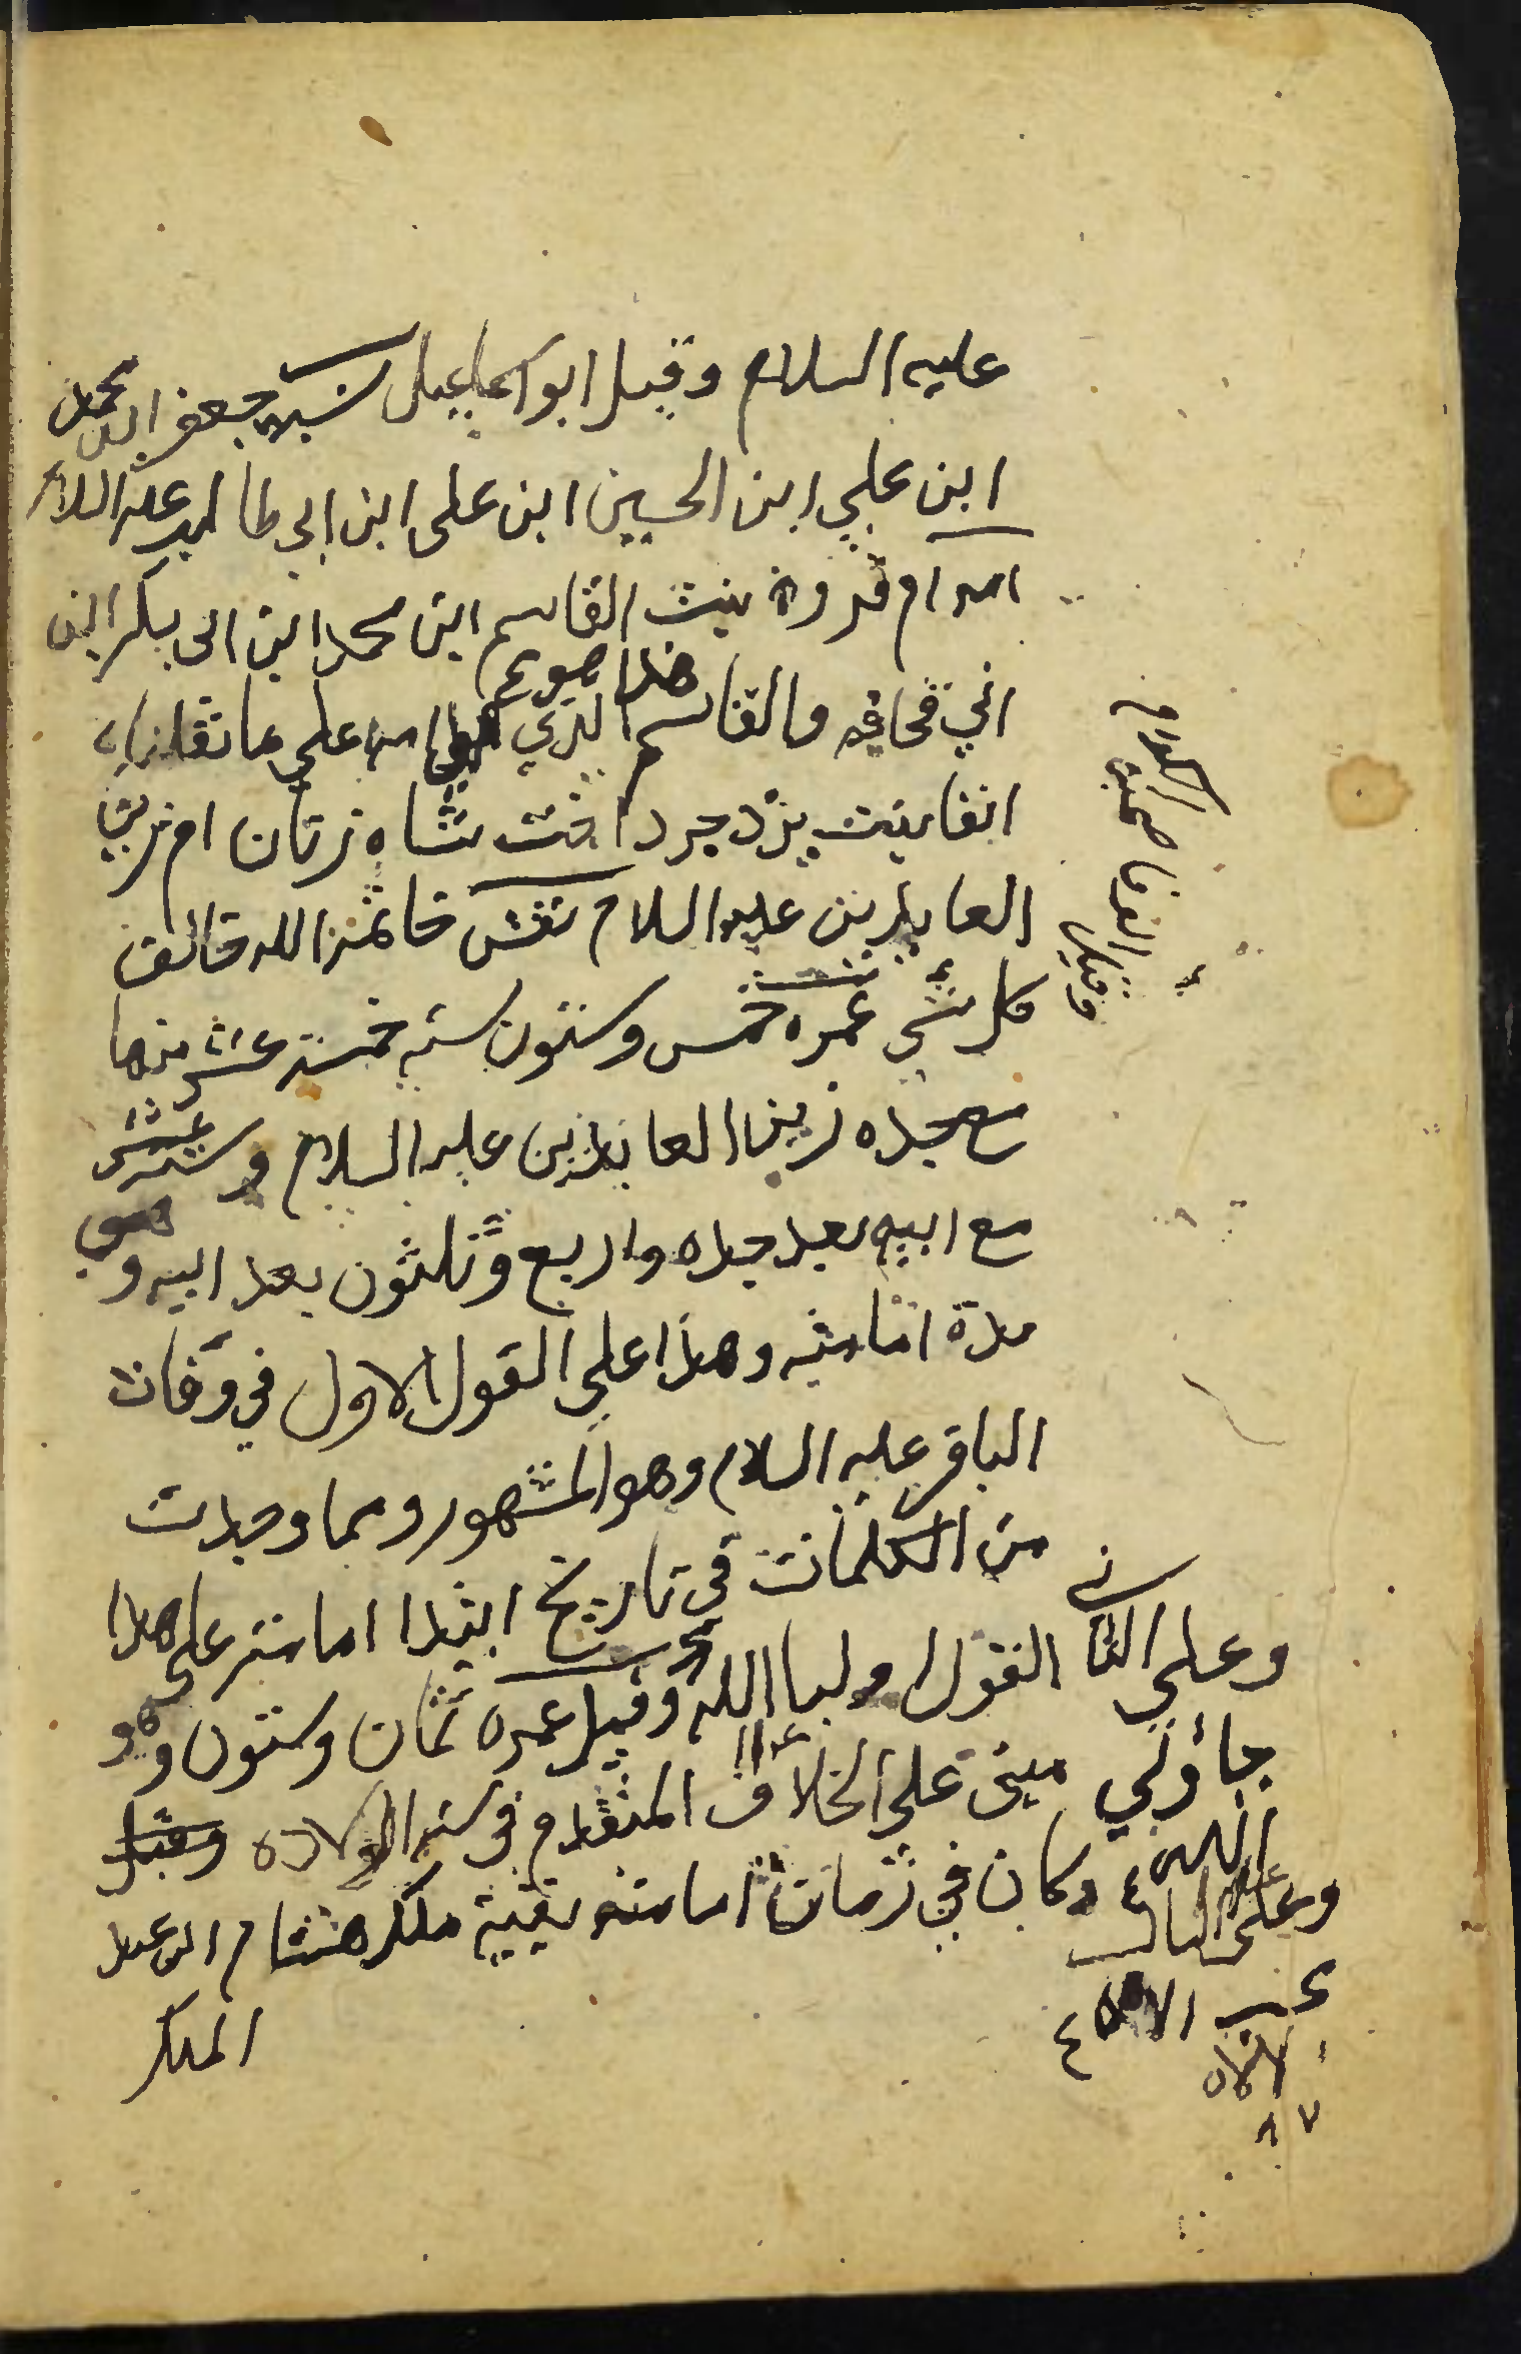 عليه السلام وقيل ابو اسماعيل نسبه جعفر ابن محمد
ابن علي ابن الحسين ابن علي ابن ابي طالب عليه السلام
امه ام فروة بنت القاسم ابن محمد ابن ابي بكر ابن
ابي قحافه والقاسم الذي امه علي ما نقلناه
هذا هو
انفا بنت يزدجرد اخت شاه زنان ام زين
العابدين عليه السلام نقش خاتمه الله خالق
كل شيء عمره خمس وستون سنه خمسة عشر منها
مع جده زين العابدين عليه السلام وستة عشر
مع ابيه بعد جده واربع وثلثون بعد ابيه وهي
مدة امامته وهذا علي القول الاول في وفات
الباقر عليه السلام وهو المشهور ومما وجدت
من الكلمات في تاريخ ابتدا امامته على هذا
القول وليا الله وقيل عمره ثمان وستون وهو
مبني على الخلاف المتقدم في سنه الولاده وقيل
وكان في زمان امامته بقية ملك هشام ابن عبد
الملك
وقيل
وعلى الثاني
وعلى الثالث
٨٧